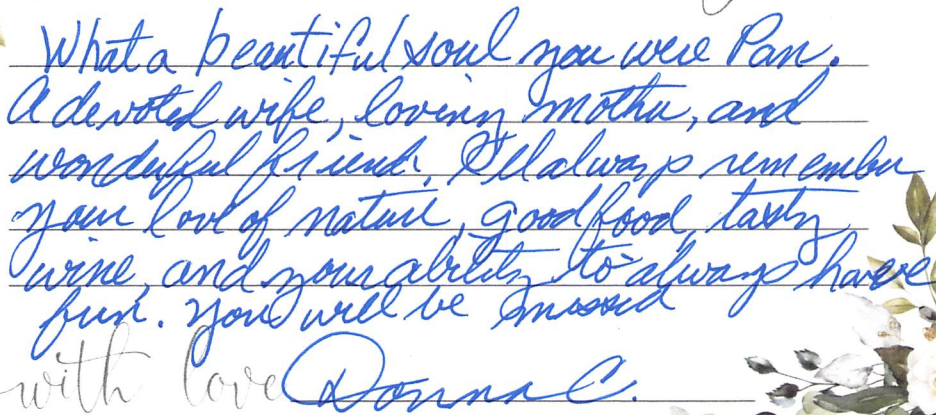 What a beautiful soul you were Pam.
A devoted wife, loving mother, and
wonderful friend. I'll always remember
your love of nature, good food, tasty
wine, and your ability to always have
fun. You will be missed
with love Donna C.